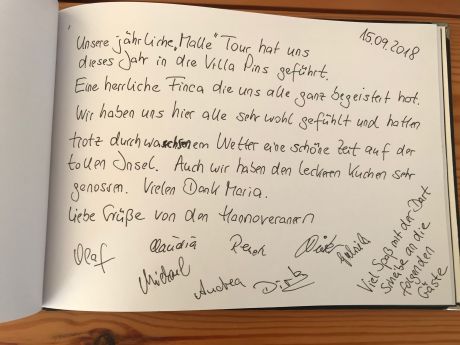 15.09.2018
Unsere jährliche „Malle" Tour hat uns
dieses Jahr in die Villa Pins geführt.
Eine herrliche Finca die uns alle ganz begeistert hat.
Wir haben uns hier alle sehr wohl gefühlt und hatten
trotz durchwachsenem Wetter eine schöne Zeit auf der
tollen Insel. Auch wir haben den leckeren Kuchen sehr
genossen. Vielen Dank Maria.
Liebe Grüße von den Hannoveranern
Olaf Claudia
Michael Andrea Dirk
Viel Spaß mit der Dart
Scheibe an die
folgenden
Gäste